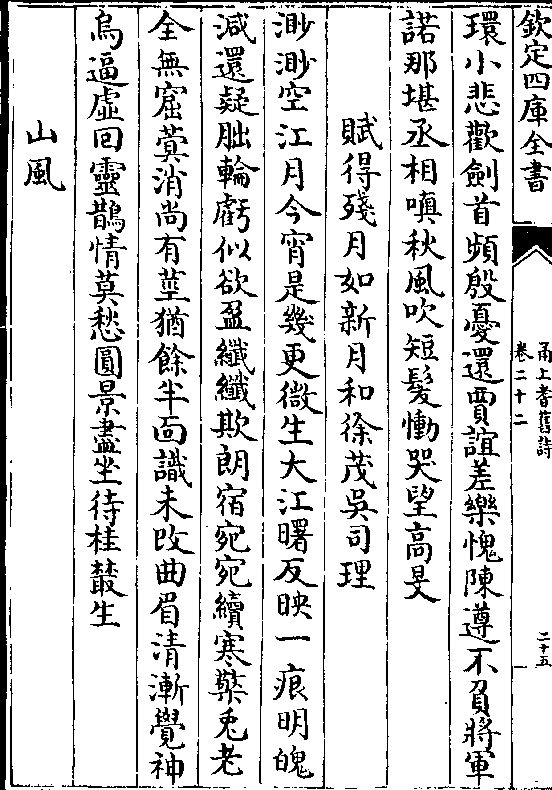 欽定四庫全書
甬上耆舊詩
卷二十二
二十五
環小悲歡劍首頻殷憂還賈誼差樂愧陳遵不負將軍
諾那堪丞相嗔秋風吹短髮慟哭望高旻
賦得殘月如新月和徐茂吳司理
渺渺空江月今宵是幾更微生大江曙反映一痕明魄
減還疑朏輪虧似欲盈纖纖欺朗宿宛宛續寒檠兎老
全無窟蓂消尚有莖猶餘半面識未改曲眉清漸覺神
烏逼虛回靈鵲情莫愁圓景盡坐待桂叢生
山風